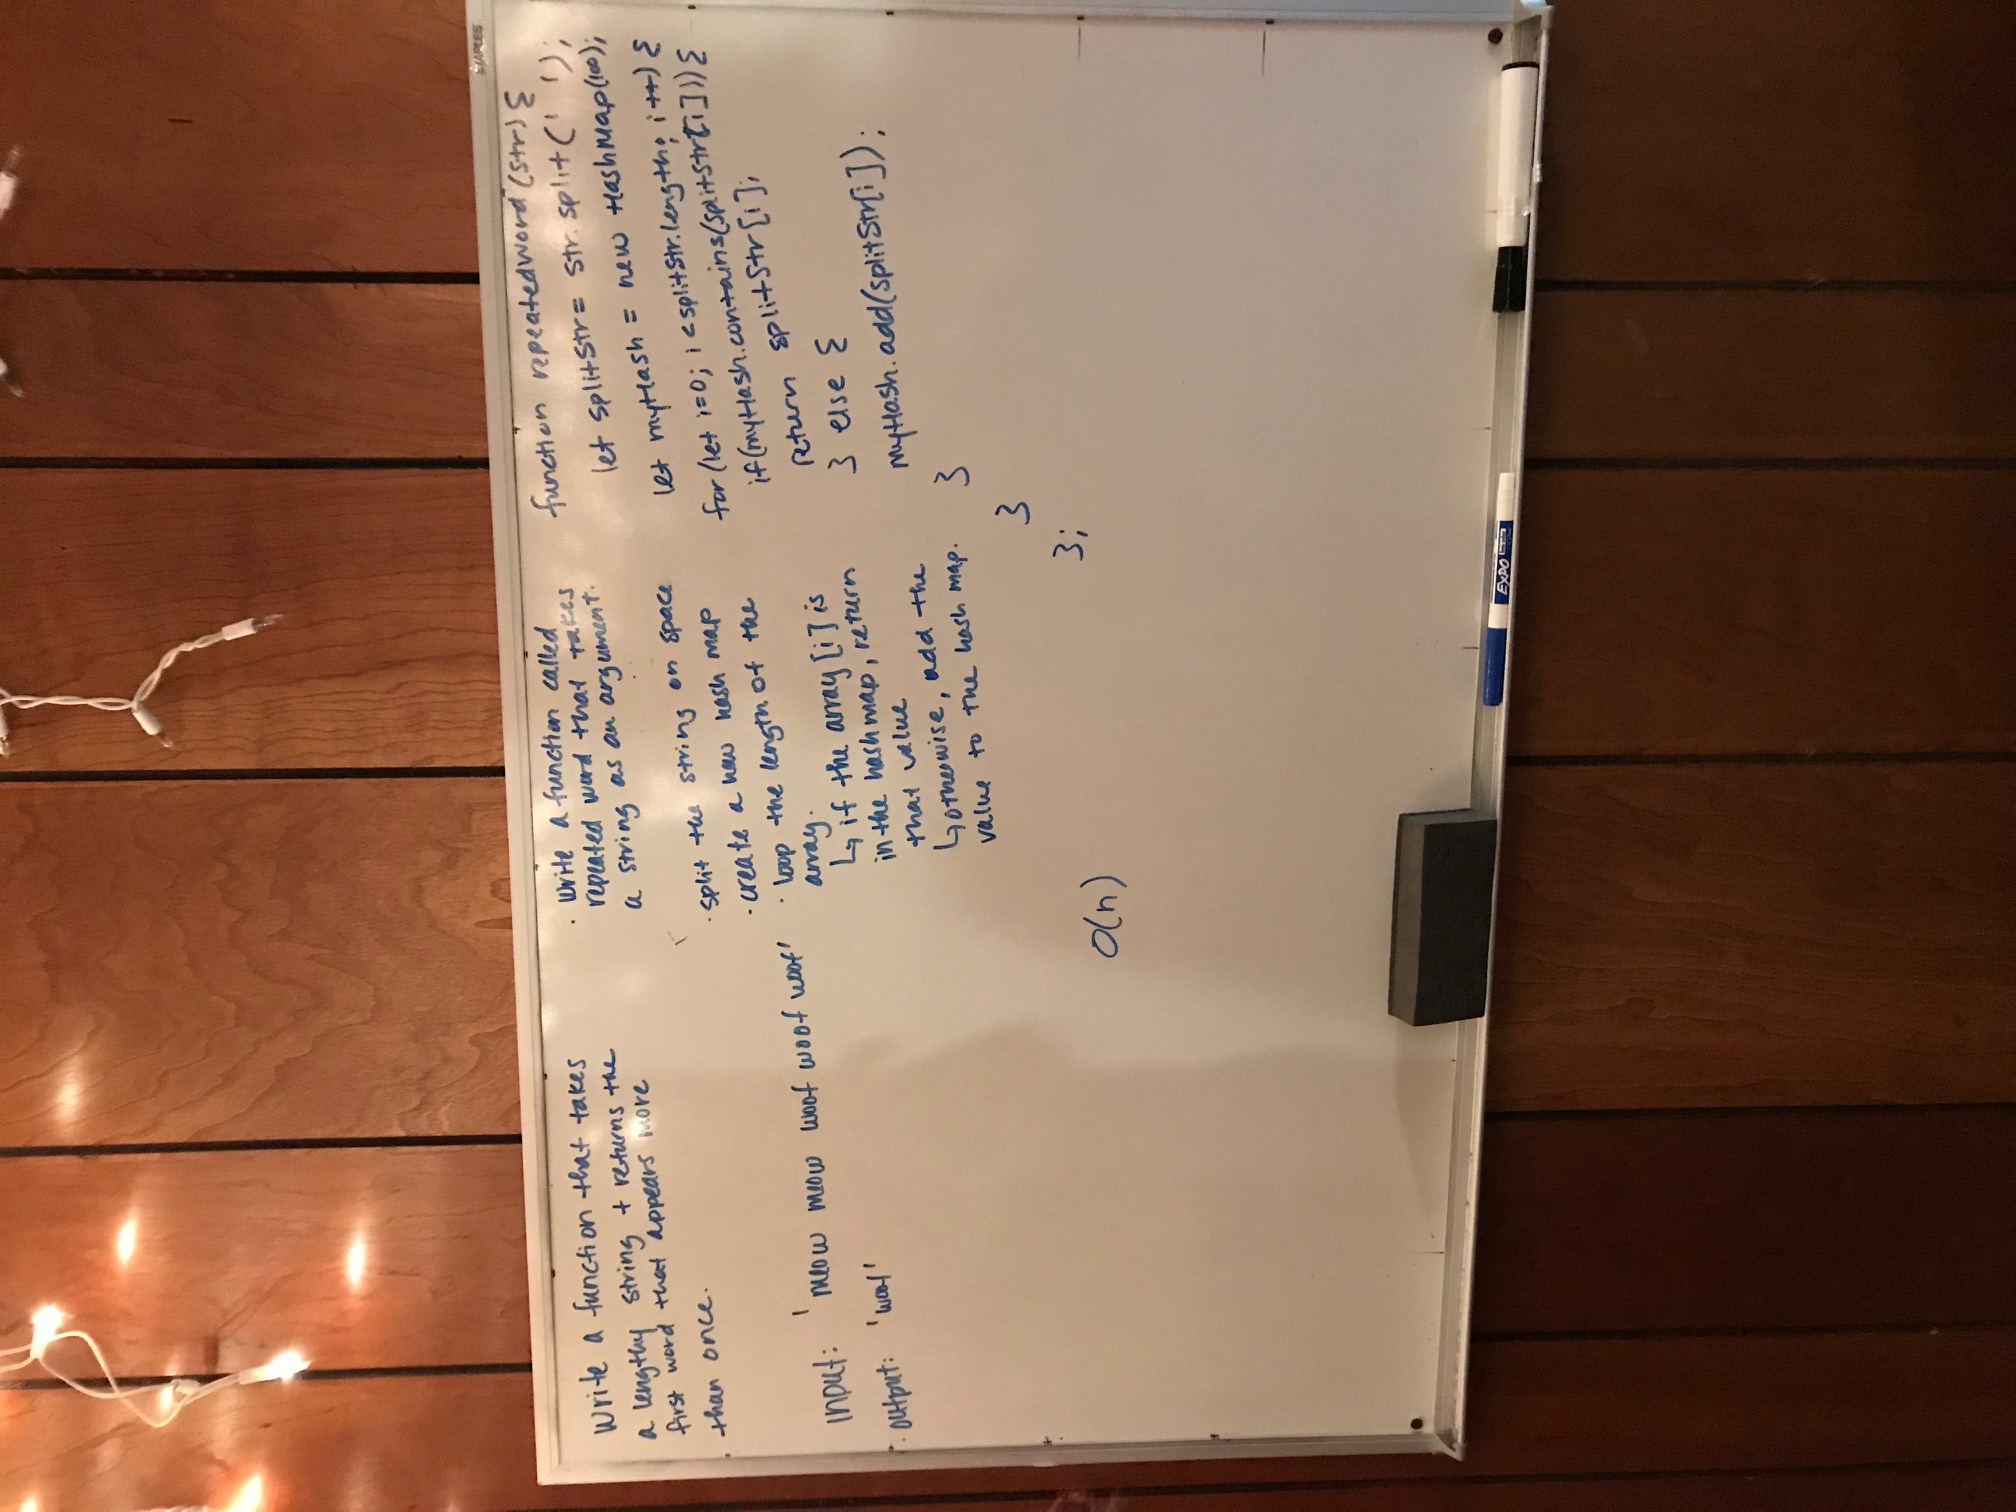 STAPLES
Write a function that takes
a lengthy string + returns the
first word that appears more
than once.
INPUT: 'meow meow woof woof woof'
output: 'woof'
· Write a function called
repeated word that takes
a string as an argument.
· split the string on space
· create a new hash map
· loop the length of the
array.
↳ if the array [i] is
in the hashmap, return
that value
↳ otherwise, add the
value to the hash map.
O(n)
function repeatedWord (str) {
let splitStr = str.split(' ');
let myHash = new HashMap(100);
for (let i=0; i < splitStr.length; i++) {
if(myHash.contains(splitStr[i])) {
return splitStr[i];
} else {
myHash.add(splitStr[i]);
}
}
};
EXPO